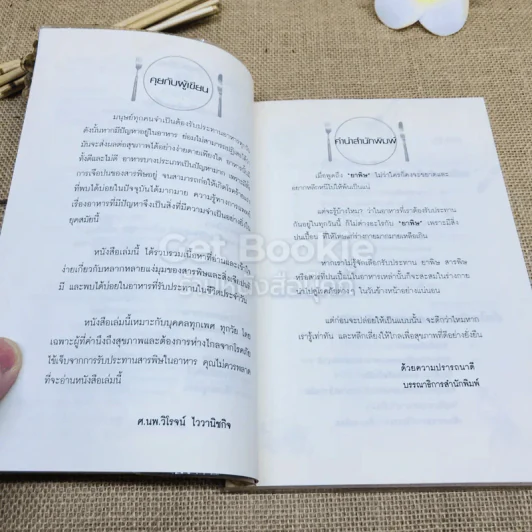 คุยกับผู้เขียน
มนุษย์ทุกคนจำเป็นต้องรับประทานอาหารทุกวัน
ดังนั้นหากมีปัญหาอยู่ในอาหาร ย่อมไม่สามารถ
มันจะส่งผลต่อสุขภาพได้อย่างร้ายดายเพียงใด อาหารนั้น
ทั้งดีและไม่ดี อาหารบางประเภทเป็นปัญหามาก
การเจือปนของสารพิษอยู่ จนสามารถก่อให้เกิดโรคร้าย
ที่พบได้บ่อยในปัจจุบันได้มากมาย ความรู้ทางการแพทย์
เรื่องอาหารที่มีปัญหาจึงเป็นสิ่งที่มีความจำเป็นอย่างยิ่งใน
ยุคสมัยนี้
หนังสือเล่มนี้ ได้รวบรวมเนื้อหาที่อ่านและเข้าใจ
ง่ายเกี่ยวกับหลากหลายแง่มุมของสารพิษและสิ่งปนเปื้อนที่
มี และพบได้บ่อยในอาหารที่รับประทานในชีวิตประจำวัน
หนังสือเล่มนี้เหมาะกับบุคคลทุกเพศ ทุกวัย โดย
เฉพาะผู้ที่คำนึงถึงสุขภาพและต้องการห่างไกลจากโรคภัย
ไข้เจ็บจากการรับประทานสารพิษในอาหาร คุณไม่ควรพลาด
ที่จะอ่านหนังสือเล่มนี้
ศ.นพ.วิโรจน์ ไววานิชกิจ
คำนำสำนักพิมพ์
เมื่อพูดถึง "ยาพิษ" ไม่ว่าใครก็คงจะขยาดและ
อยากหลีกหนีไปให้พ้นเป็นแน่
แต่จะรู้บ้างไหม ว่าในอาหารที่เราต้องรับประทาน
กันอยู่ทุกวันนี้ ก็ไม่ต่างอะไรกับ "ยาพิษ" เพราะมีสิ่ง
ปนเปื้อน ที่ให้โทษแก่ร่างกายมากมายเหลือเกิน
หากเราไม่รู้จักเลือกรับประทาน ยาพิษ สารพิษ
หรือสิ่งที่ปนเปื้อนในอาหารเหล่านั้นก็จะสะสมในร่างกาย
นำไปสู่โรคภัยต่างๆ ในวันข้างหน้าอย่างแน่นอน
แต่ก่อนจะปล่อยให้เป็นแบบนั้น จะดีกว่าไหมหาก
เรารู้เท่าทัน และหลีกเลี่ยงให้ไกลเพื่อสุขภาพที่ดีอย่างยั่งยืน
ด้วยความปรารถนาดี
บรรณาธิการสำนักพิมพ์
Get Bookie